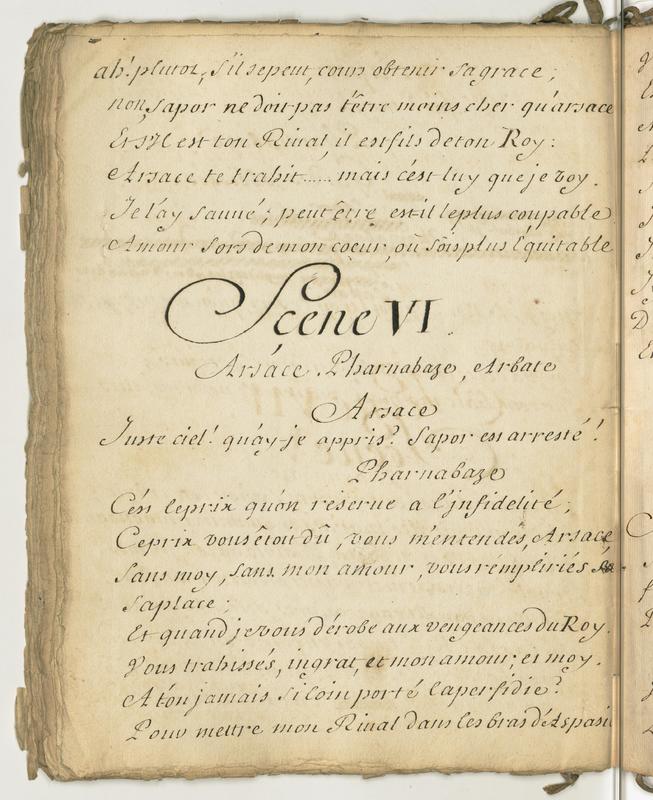 ah! plutot, s'il sepeut, cours obtenir sa grace;
non, sapor ne doit pas t'être moins cher qu'arsace
Et s'Il est ton Rival, il est fils de ton Roy:
Arsace te trahit...... mais c'est luy que je voy.
Je l'ay sauué; peut être est-il le plus coupable
Amour sors de mon coeur, ou sois plus équitable
Scene VI.
Arsace, Pharnabaze, Arbate
Arsace
Juste ciel! qu'ay-je appris? Sapor est arresté!
Pharnabaze
C'est le prix qu'on réserue a l'infidelité;
Ce prix vous êtoit dû, vous m'entendés, Arsace
Sans moy, sans mon amour, vous rémpliriés
sa place;
Et quand je vous dérobe aux vengeances du Roy.
Vous trahissés, ingrat, et mon amour, et moy.
A t'on jamais si loin porté la perfidie?
Pour mettre mon Riual dans les bras d'Aspasie